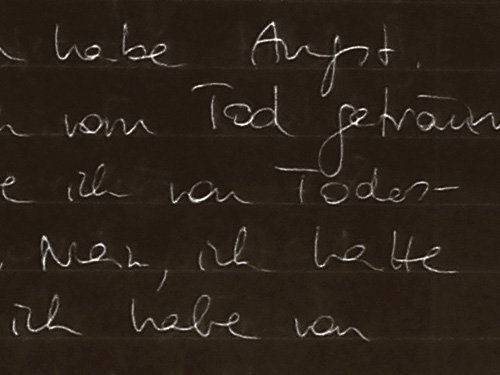 h habe Angst.
h vom Tod geträum
e ich von Todes-
, Nein, ich hatte
ich habe von